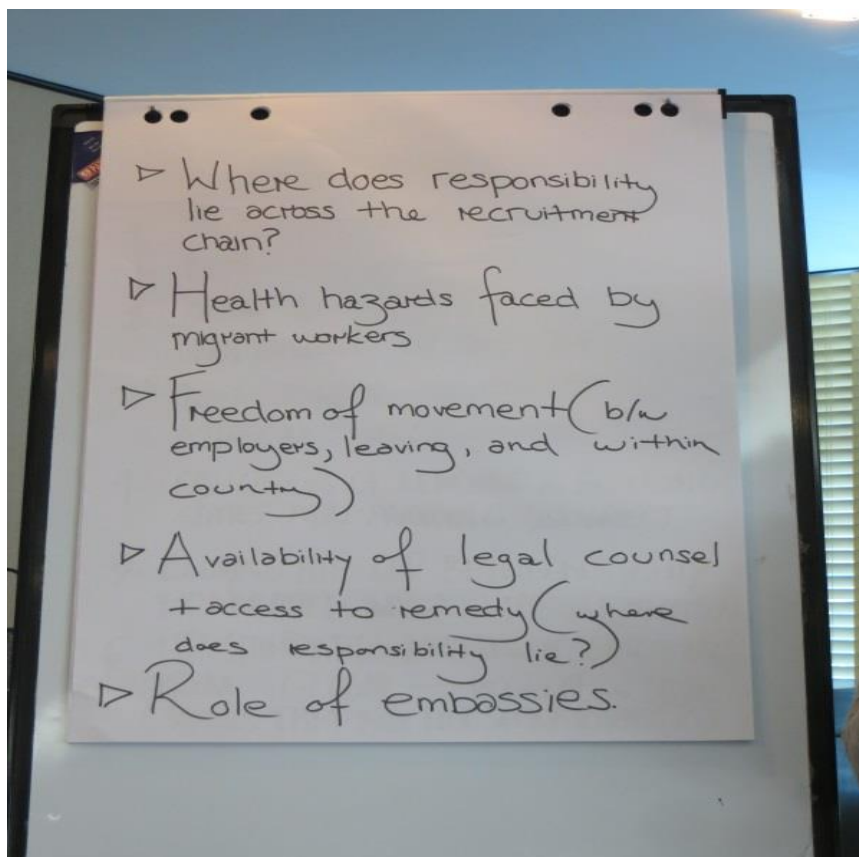 ▷ Where does responsibility
lie across the recruitment
chain?
▷ Health hazards faced by
migrant workers
▷ Freedom of movement (b/w
employers, leaving, and within
country)
▷ Availability of legal counsel
+access to remedy (where
does responsibility lie?)
▷ Role of embassies.